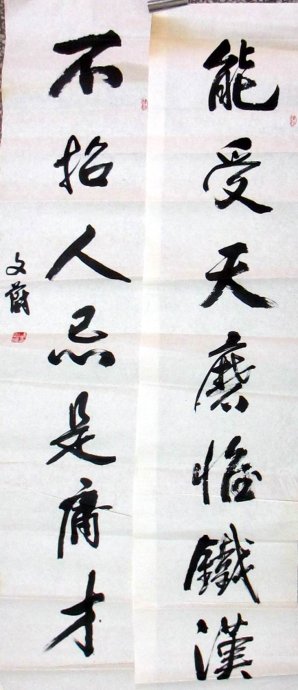 能受天磨惟鐵漢
不招人忌是庸才
文蔚